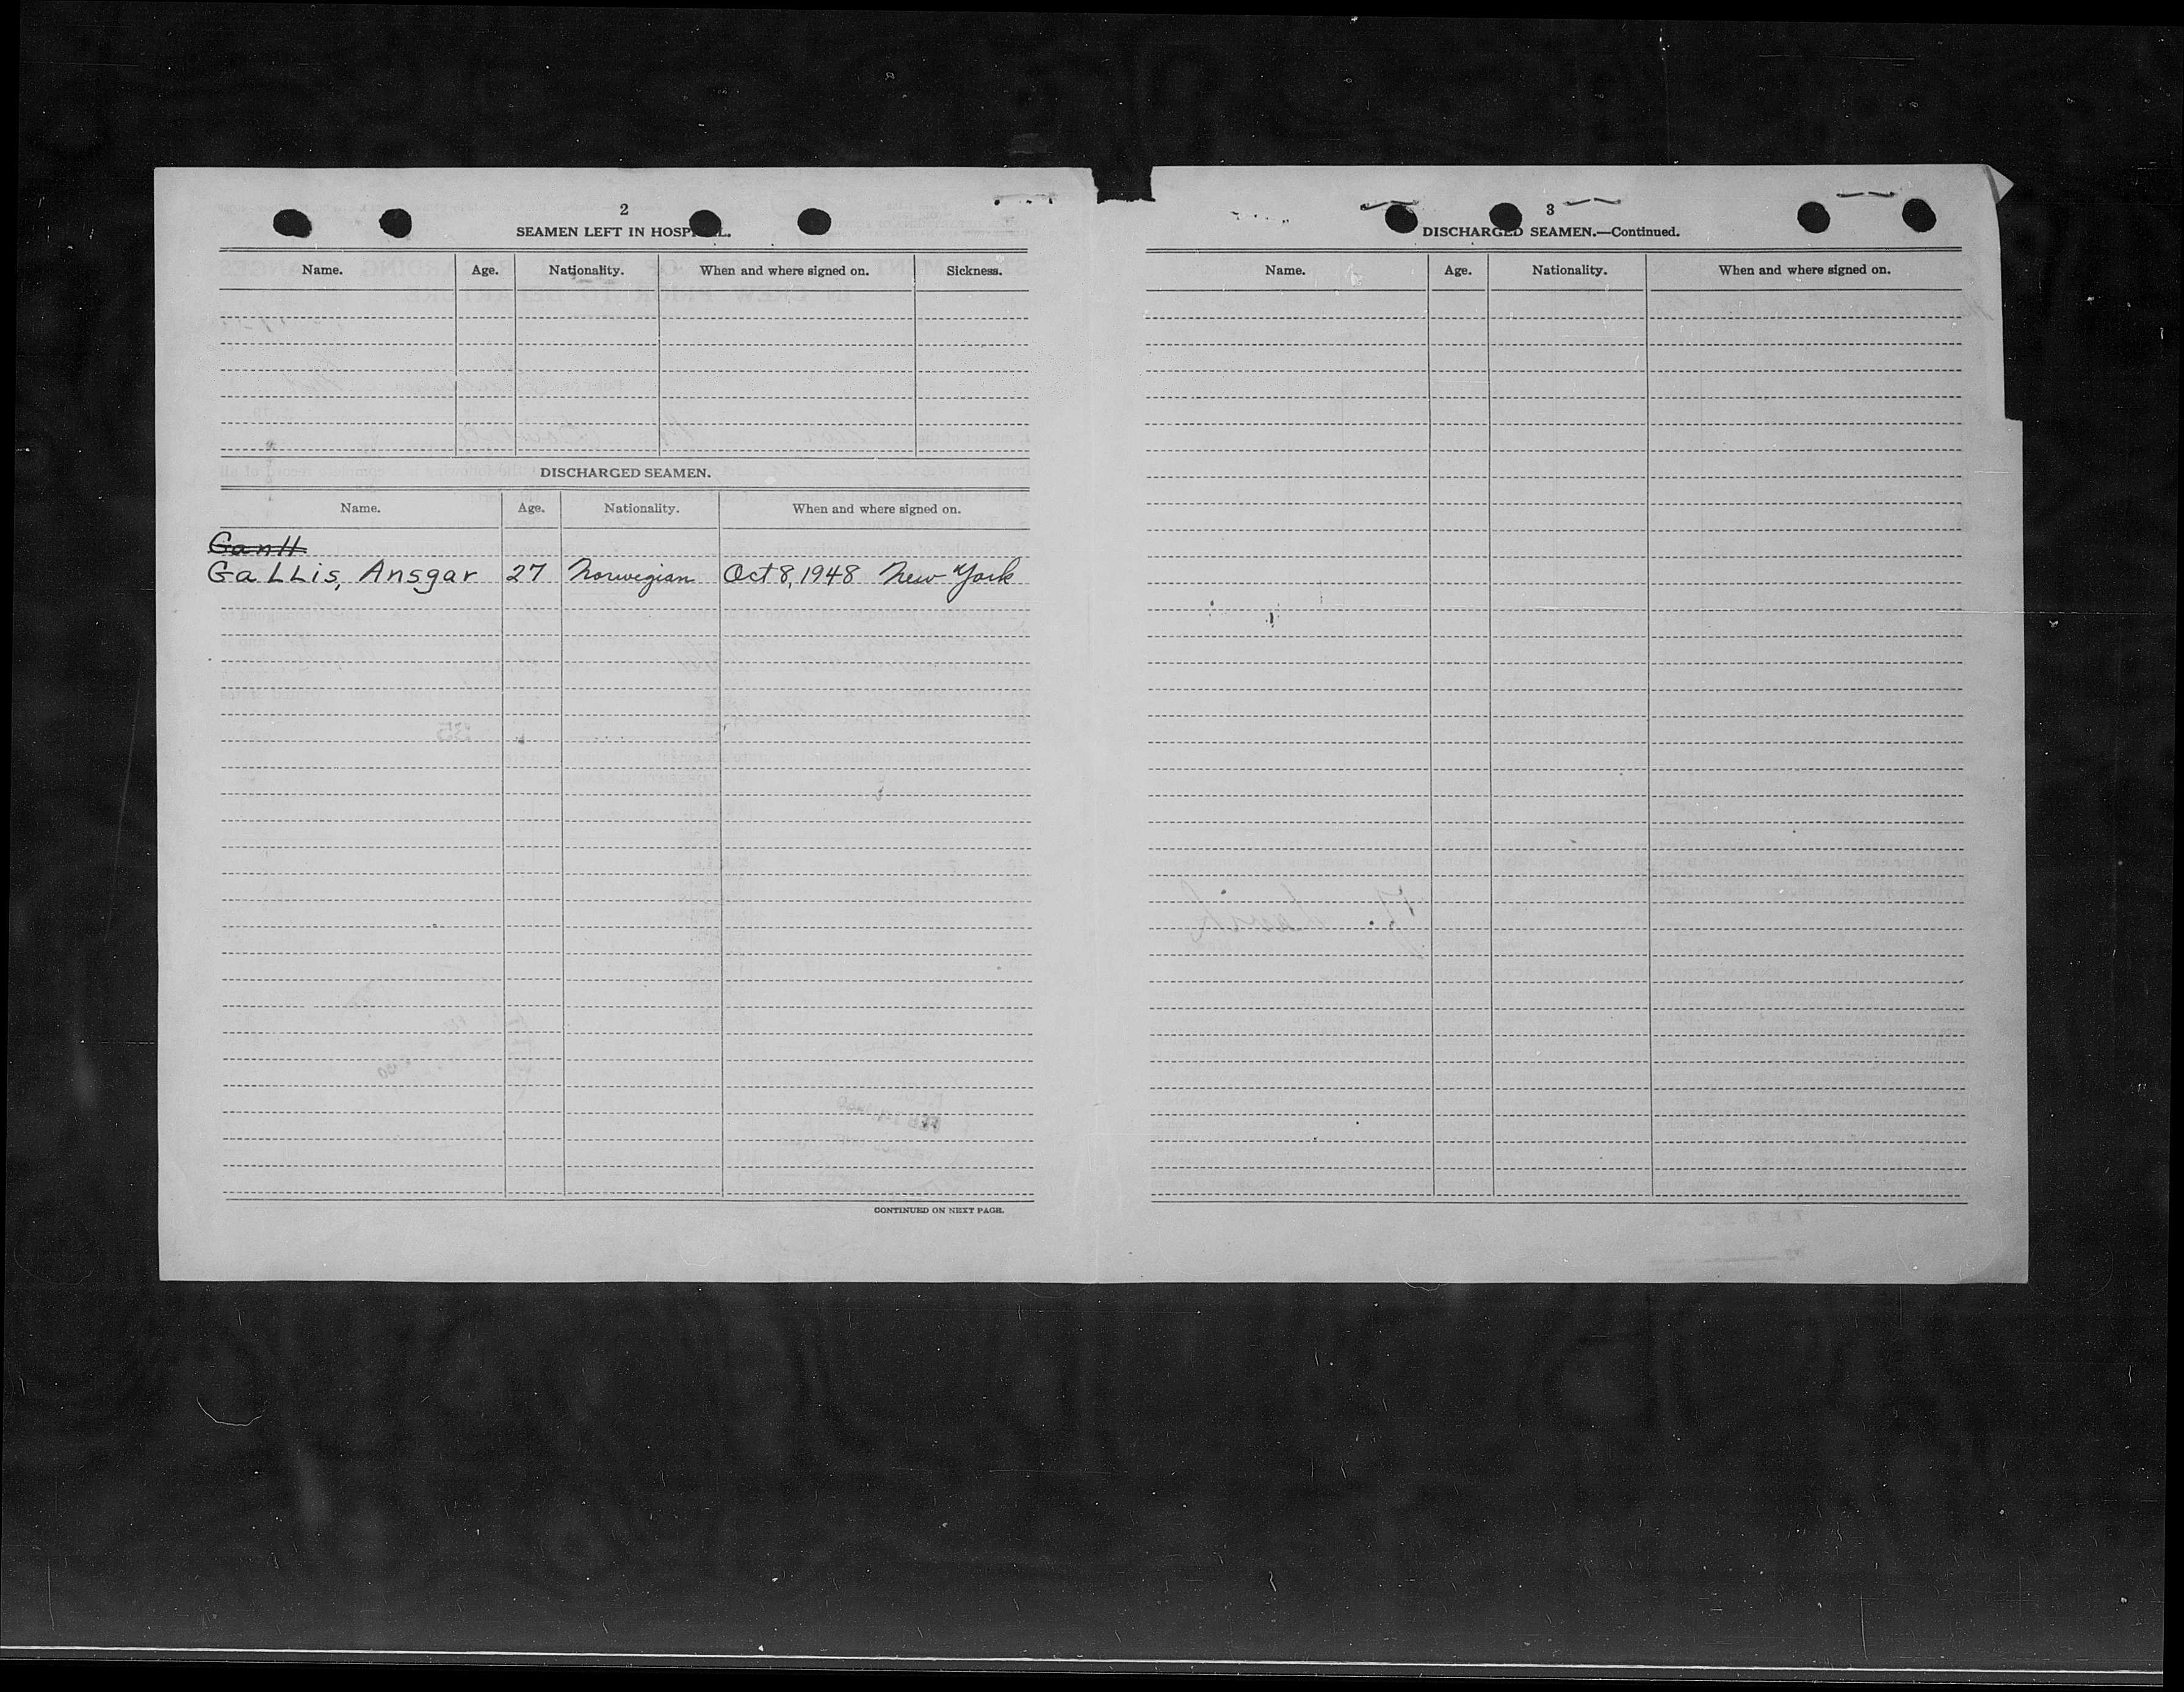 2
SEAMEN LEFT IN HOSPITAL.
Name. Age. Nationality. When and where signed on. Sickness.
DISCHARGED SEAMEN.
Name. Age. Nationality. When and where signed on.
GaLLis, Ansgar 27 Norwegian Oct 8, 1948 New York
CONTINUED ON NEXT PAGE.
3
DISCHARGED SEAMEN.—Continued.
Name. Age. Nationality. When and where signed on.